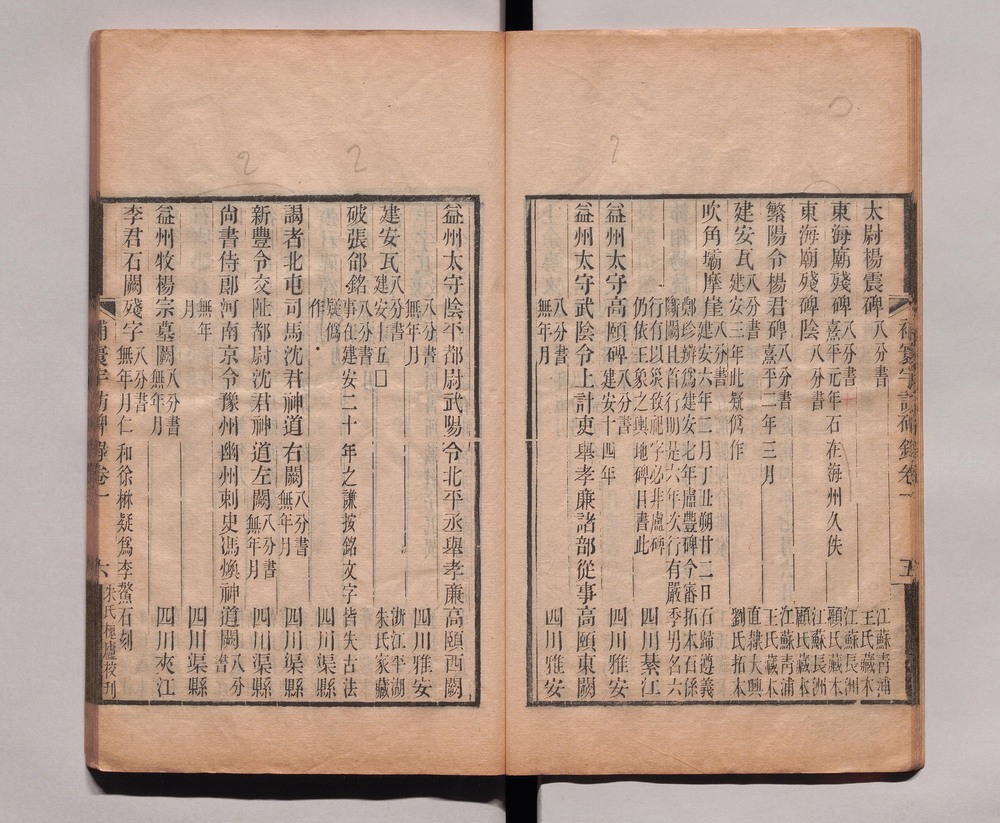 太尉楊震碑 八分書 江蘇青浦王氏藏本
東海廟殘碑 八分書 熹平元年石在海州久佚 江蘇長洲顧氏藏本
東海廟殘碑陰 八分書 江蘇長洲顧氏藏本
繁陽令楊君碑 八分書 熹平二年三月 江蘇青浦王氏藏本
建安瓦 八分書 建安三年此疑僞作 直隸大興劉氏拓本
吹角壩摩崖 八分書 建安六年二月丁丑朔廿二日石歸遵義
鄭珍辨爲建安七年盧豐碑今審拓本石係
斷闕且首行明是六年次行有嚴季男名六
行有以災攸祀字必非盧碑
仍依王象之輿地碑目書此 四川綦江
益州太守高頤碑 八分書 建安十四年 四川雅安
益州太守武陰令上計吏舉孝廉諸部從事高頤東闕
八分書 無年月 四川雅安
補寰宇訪碑錄卷一 五
益州太守陰平都尉武陽令北平丞舉孝廉高頤西闕
八分書 無年月 四川雅安
建安瓦 八分書 建安十五□ 浙江平湖朱氏家藏
破張郃銘 八分書 事在建安二十年之謙按銘文字皆失古法
疑僞作 四川渠縣
謁者北屯司馬沈君神道右闕 八分書 無年月 四川渠縣
新豐令交阯都尉沈君神道左闕 八分書 無年月 四川渠縣
尚書侍郎河南京令豫州幽州刺史馮煥神道闕 八分書
無年月 四川渠縣
益州牧楊宗墓闕 八分書 無年月 四川夾江
李君石闕殘字 八分書 無年月仁和徐楙疑爲李鼇石刻
補寰宇訪碑錄卷一 六 朱氏槐廬校刊